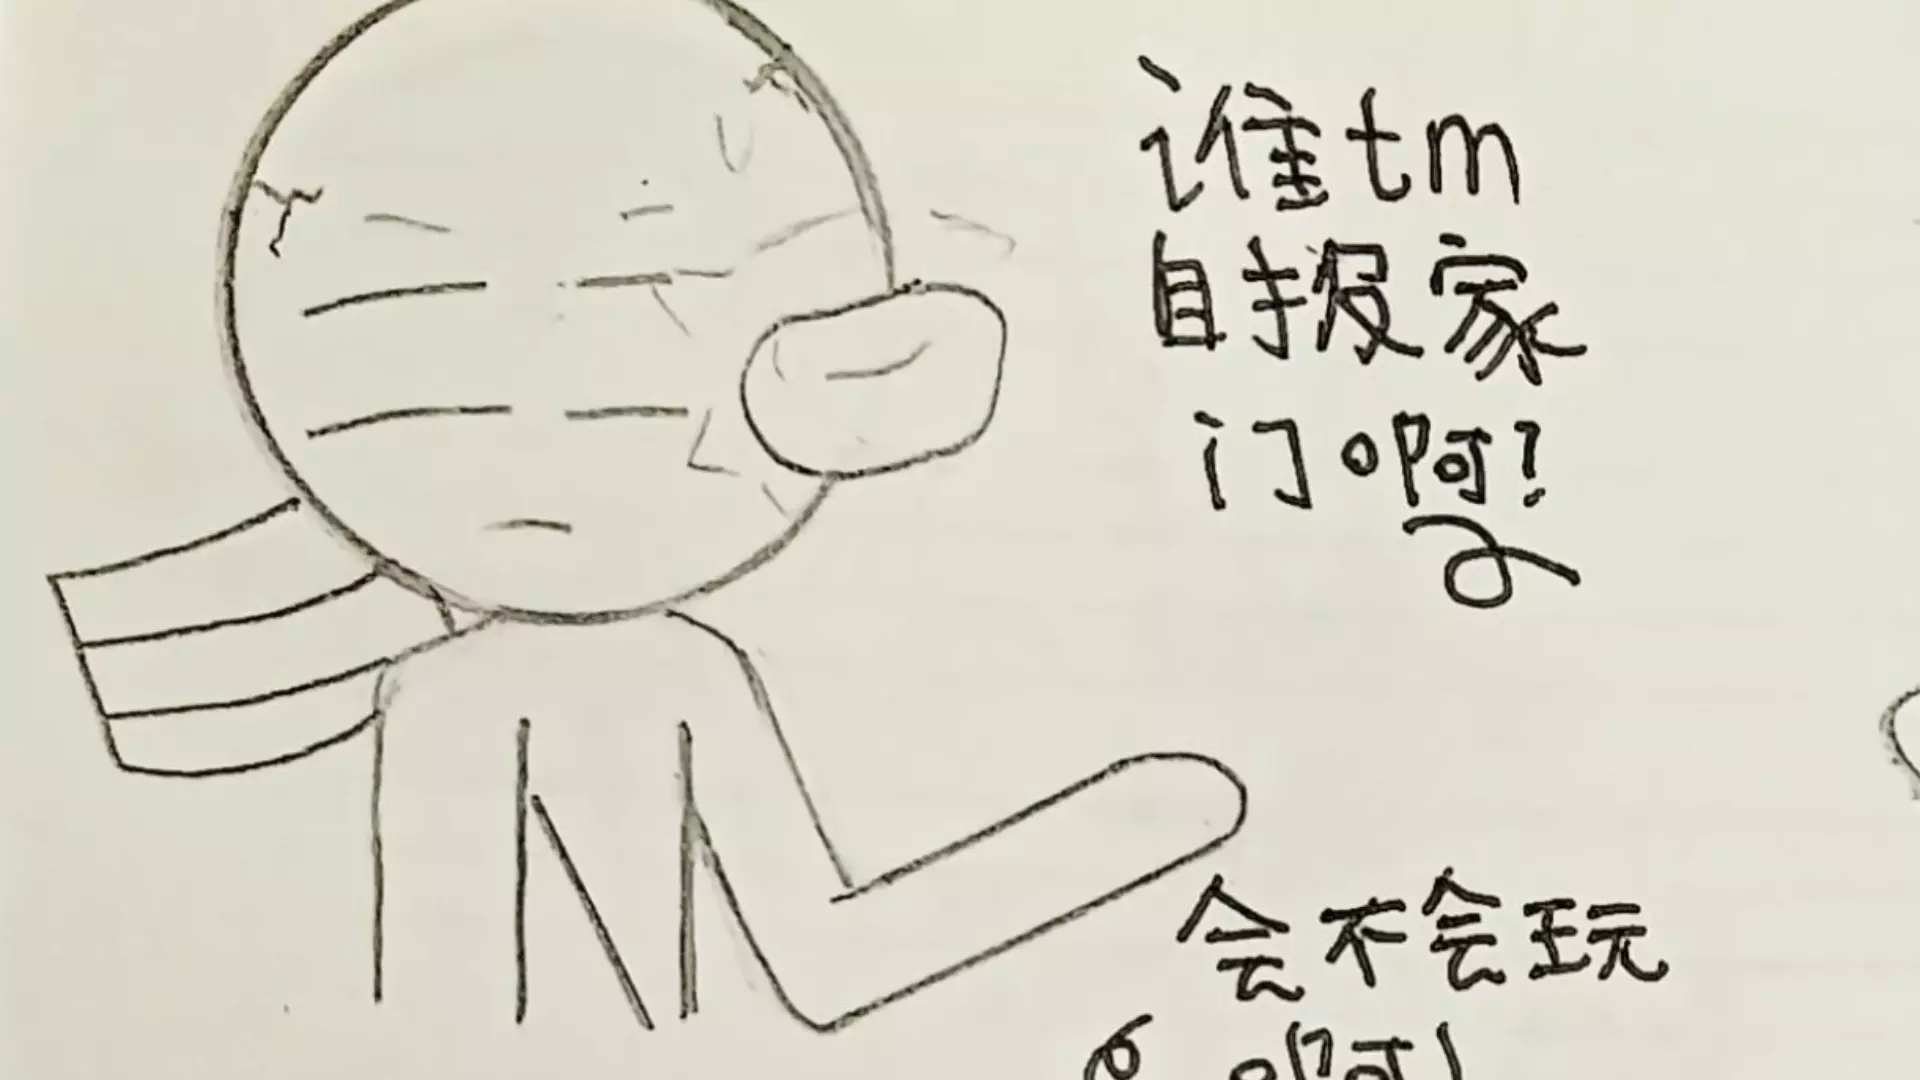 谁tm
自报家
门啊?
会不会玩
啊!